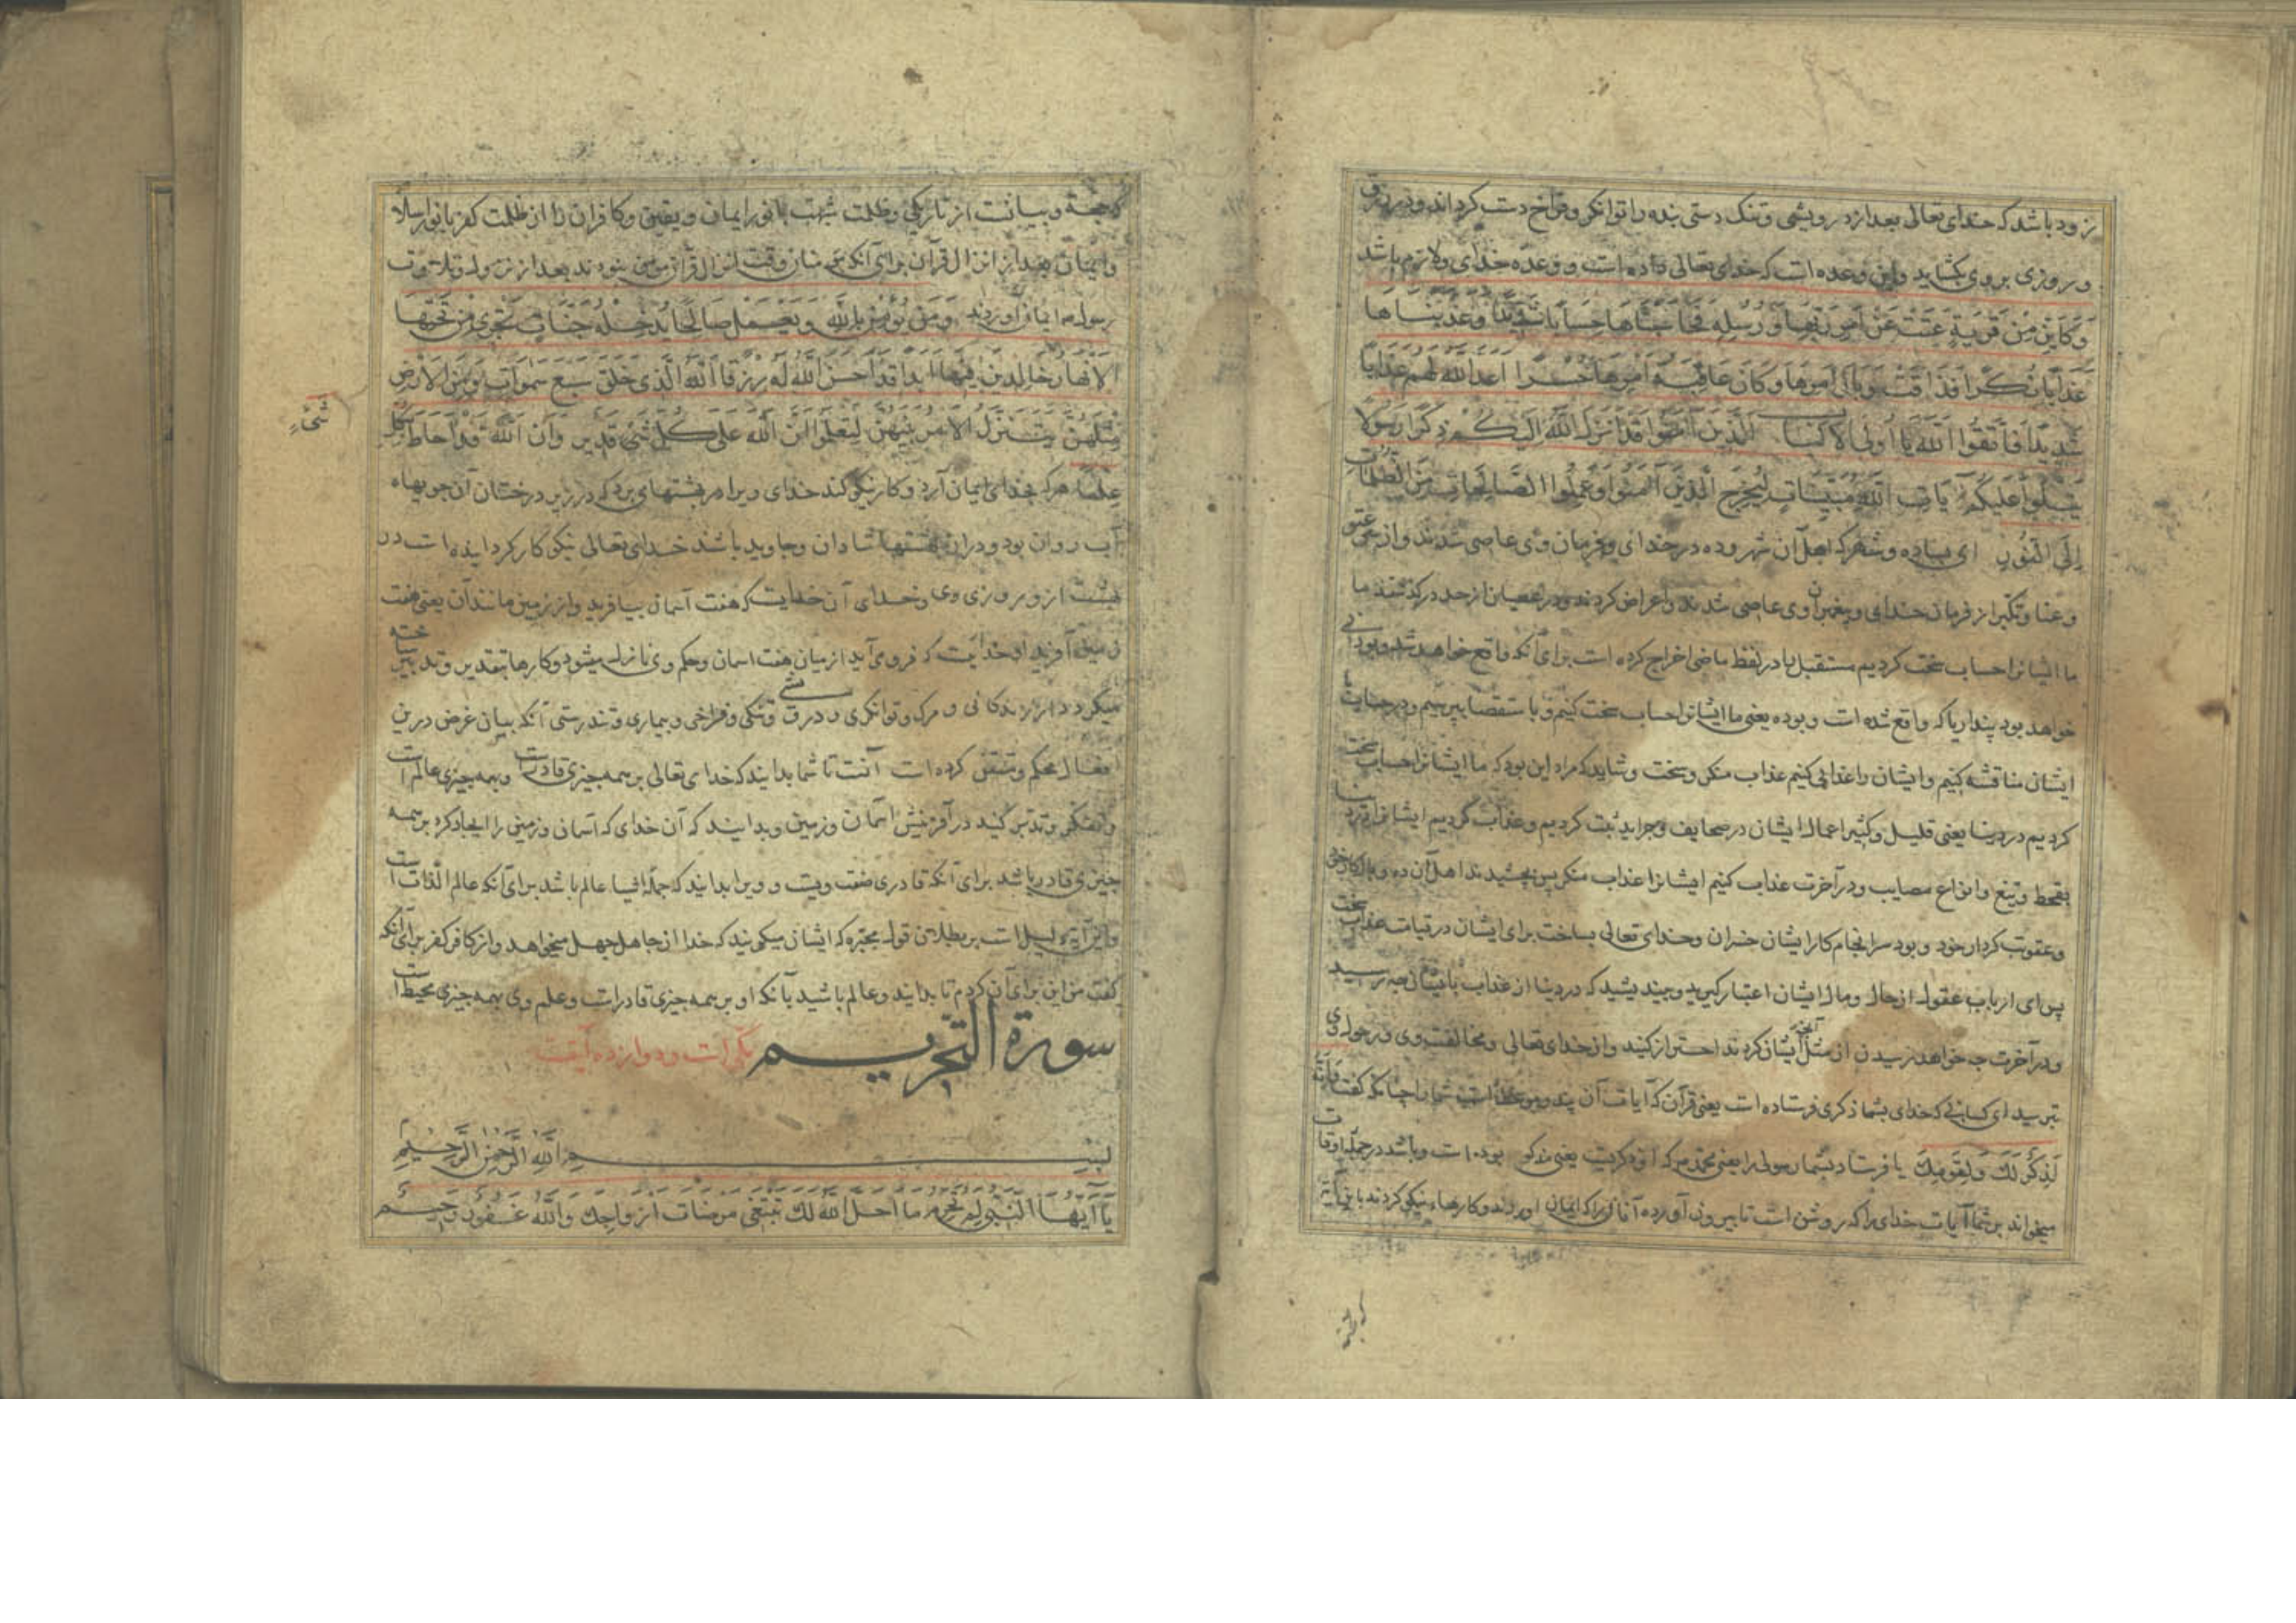 زود باشد که خدای تعالی بعد از درویشی و تنک دستی بنده را توانکر و فراخ دست کرداند و در رزق
و روزی بر وی بکشاید و این وعده است که خدای تعالی داده است و وعده خدای ولازم باشد
وَكَاَيِّنْ مِنْ قَرْيَةٍ عَتَتْ عَنْ اَمْرِ رَبِّهَا وَ رُسُلِهِ فَحَاسَبْنَاهَا حِسَاباً شَدِيداً وَعَذَّبْنَاهَا
عَذَاباً نُكْراً فَذَاقَتْ وَبَالَ اَمْرِهَا وَكَانَ عَاقِبَةُ اَمْرِهَا خُسْراً اَعَدَّ اللَّهُ لَهُمْ عَذَاباً
شَدِيداً فَاتَّقُوا اللَّهَ يَا اُولِي الْاَلْبَابِ الَّذِينَ آمَنُوا قَدْ اَنْزَلَ اللَّهُ اِلَيْكُمْ ذِكْراً رَسُولاً
يَتْلُوا عَلَيْكُمْ آيَاتِ اللَّهِ مُبَيِّنَاتٍ لِيُخْرِجَ الَّذِينَ آمَنُوا وَعَمِلُوا الصَّالِحَاتِ مِنَ الظُّلُمَاتِ
اِلَى النُّورِ ای بساده و شهر که اهل آن شهر و ده در خدای و فرمان وی عاصی شدند و از عتو
و عنا و تکبر از فرمان خدای و پیغمبران وی عاصی شدند و اعراض کردند و در عصیان از حد در کذشتند ما
ما ایشانرا حساب سخت کردیم مستقبل با در لفظ ماضی اخراج کرده است برای آنکه واقع خواهد شد و بودنی
خواهد بود پنداریا که واقع شده است و بوده یعنی ما ایشانرا حساب سخت کنیم و باستقصا بپرسیم و در حساب
ایشان مناقشه کنیم و ایشان را عذابی کنیم عذاب منکر و سخت و شاید که مراد این بود که ما ایشانرا حساب سخت
کردیم در دنیا یعنی قلیل و کثیر اعمال ایشان در صحایف و جراید ثبت کردیم و عذاب کردیم ایشانرا در دنیا
بقحط و تیغ و انواع مصایب و در آخرت عذاب کنیم ایشانرا عذاب منکر پس بچشیدند اهل آن ده وبال کار خود
و عقوبت کردار خود و بود سرانجام کار ایشان خسران و خدای تعالی بساخت برای ایشان در قیامت عذاب سخت
پس ای ارباب عقول از حال و مال ایشان اعتبار کیرید و بیندیشید که در دنیا از عذاب بایشان چه رسید
و در آخرت چه خواهد رسیدن از مثل آنچه ایشان کردند احتراز کنید و از خدای تعالی و مخالفت وی و رسول وی
بترسید ای کسانی که خدای بشما ذکری فرستاده است یعنی قرآن که آیات آن پند و موعظه است شما را چنانکه کفت وَاِنَّهُ
لَذِكْرٌ لَكَ وَلِقَوْمِكَ یا فرستاد بشما رسولی را یعنی محمد ص که او ذکرست یعنی مذکور بوده است و باشد در جمله اوقات
میخواند بر شما آیات خدای را که روشن است تا بیرون آورده آنان را که ایمان آوردند و کارهاء نیکو کردند باین آیت
که حجة و بیانست از تاریکی و ظلمت شبهت بانور ایمان و یقین و کافران را از ظلمت کفر بانور اسلام
و ایمان بعد از انزال قرآن برای آنکه مؤمنان وقت انزال قرآن مؤمن نبودند بعد از نزول و تلاوت
رسول ص ایمان آوردند وَمَنْ يُؤْمِنْ بِاللَّهِ وَيَعْمَلْ صَالِحاً يُدْخِلْهُ جَنَّاتٍ تَجْرِي مِنْ تَحْتِهَا
الْاَنْهَارُ خَالِدِينَ فِيهَا اَبَداً قَدْ اَحْسَنَ اللَّهُ لَهُ رِزْقاً اَللَّهُ الَّذِي خَلَقَ سَبْعَ سَمَوَاتٍ وَمِنَ الْاَرْضِ
مِثْلَهُنَّ يَتَنَزَّلُ الْاَمْرُ بَيْنَهُنَّ لِتَعْلَمُوا اَنَّ اللَّهَ عَلَى كُلِّ شَيْءٍ قَدِيرٌ وَاَنَّ اللَّهَ قَدْ اَحَاطَ بِكُلِّ
شَيْءٍ
عِلْماً هر که بخدای ایمان آرد و کار نیکو کند خدای ویرا در بهشتهای برد که در زیر درختان آن جویهاء
آب روان بود و در ان بهشتها شادان و جاوید باشند خدای تعالی نیکو کار کردانیده است در
بهشت از و بر روزی وی و خدای آن خدایست که هفت آسمان بیافرید و از زمین مانند آن یعنی هفت
زمین آفرید او خدایست که فرو می آید از میان هفت اسمان و حکم وی نازل میشود و کارها بتقدیر و تدبیر ساخته
میکردد از زندکانی و مرک و توانکری و درویشی و تنکی و فراخی و بیماری و تندرستی آنکه بیان غرض درین
افعال محکم و متقن کرده است آنست تا شما بدانید که خدای تعالی بر همه چیزی قادرست و بهمه چیزی عالم است
و تفکر و تدبر کنید در آفرینش اسمان و زمین و بدانید که آن خدای که اسمان و زمین را ایجاد کرد بر همه
چیزی قادر باشد برای آنکه قادری صفت ویست و ویرا بدانید که جملۀ اشیا عالم باشد برای آنکه عالم الذات است
و این آیت دلیل است بر بطلان قول مجبره که ایشان میکویند که خدا از جاهل جهل میخواهد و از کافر کفر برای آنکه
کفت من این برای آن کردم تا بدانید و عالم باشید بآنکه او بر همه چیزی قادرست و علم وی بهمه چیزی محیط است
سورة التحریم یکی است و دوازده آیت
بِسْمِ اللَّهِ الرَّحْمَنِ الرَّحِيمِ
يَا اَيُّهَا النَّبِيُّ لِمَ تُحَرِّمُ مَا اَحَلَّ اللَّهُ لَكَ تَبْتَغِي مَرْضَاتَ اَزْوَاجِكَ وَاللَّهُ غَفُورٌ رَحِيمٌ